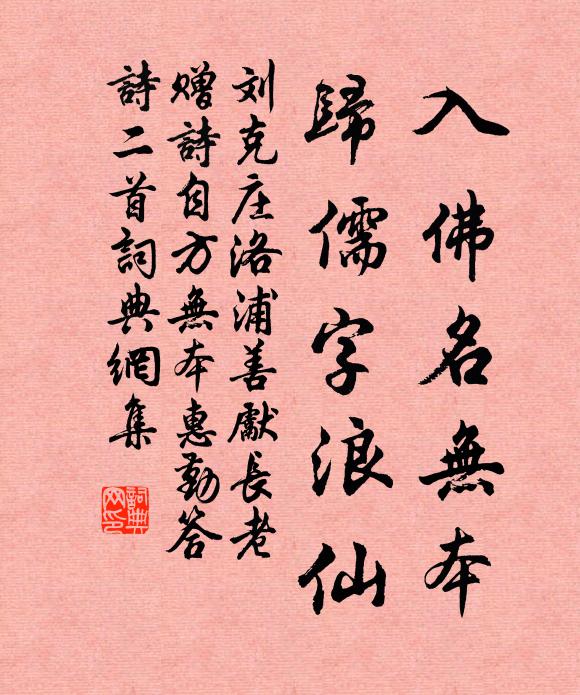 入佛名無本
歸儒字浪仙
刘克庄洛浦善獻長老
赠詩自方無本惠勤答
詩二首詞典網集
詞典网印